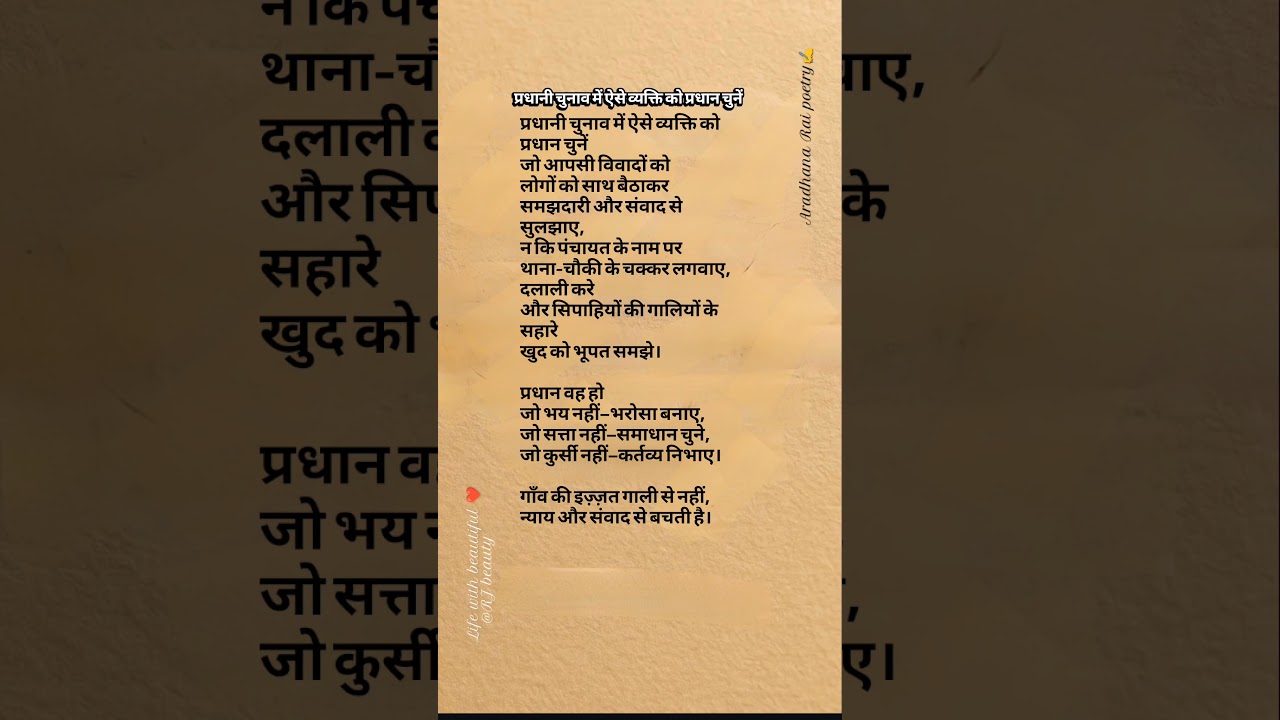 प्रधानी चुनाव में ऐसे व्यक्ति को प्रधान चुनें
प्रधानी चुनाव में ऐसे व्यक्ति को
प्रधान चुनें
जो आपसी विवादों को
लोगों को साथ बैठाकर
समझदारी और संवाद से
सुलझाए,
न कि पंचायत के नाम पर
थाना-चौकी के चक्कर लगवाए,
दलाली करे
और सिपाहियों की गालियों के
सहारे
खुद को भूपत समझे।
प्रधान वह हो
जो भय नहीं–भरोसा बनाए,
जो सत्ता नहीं–समाधान चुने,
जो कुर्सी नहीं–कर्तव्य निभाए।
गाँव की इज़्ज़त गाली से नहीं,
न्याय और संवाद से बचती है।
Aradhana Rai poetry✍️
Life with beautiful ❤️
@RJ beauty